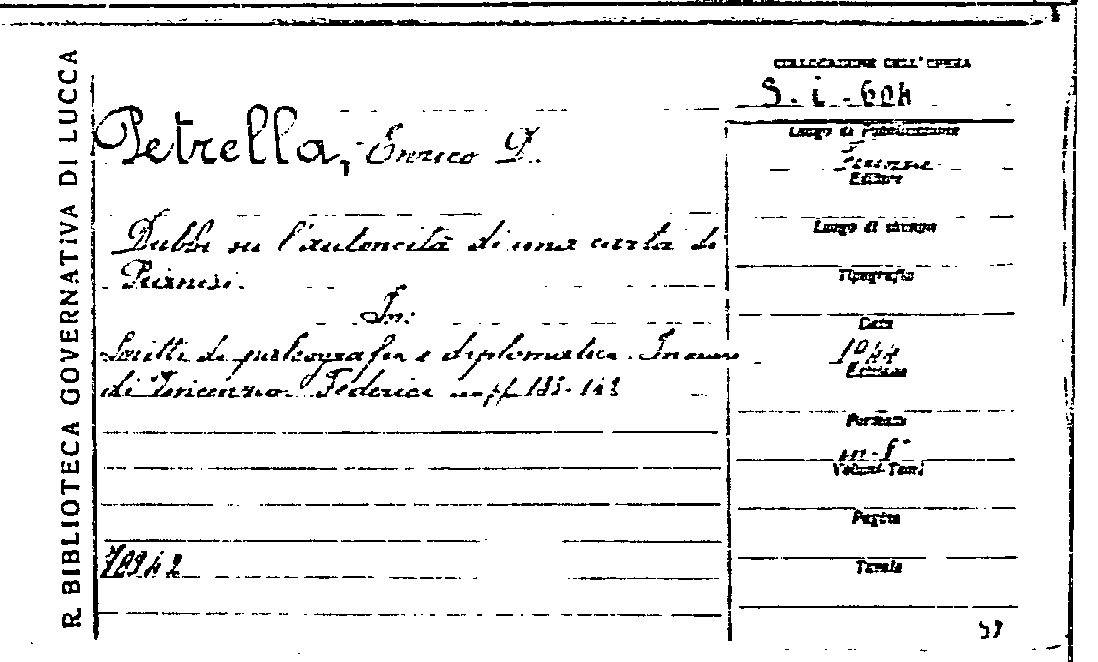 R. BIBLIOTECA GOVERNATIVA DI LUCCA
COLLOCAZIONE DELL'OPERA
S. i. - 604
Petrella, Enrico D.
Dubbi su l'autencità di una carta di
In:
Scritti di paleografia e diplomatica. In onore
di Vincenzo Federici pp. 133-143
70942
Luogo di Pubblicazione
Firenze
Editore
Luogo di stampa
Tipografia
Data
1944
Edizione
Formato
in-8°
Volumi-Tomi
Pagine
Tavole